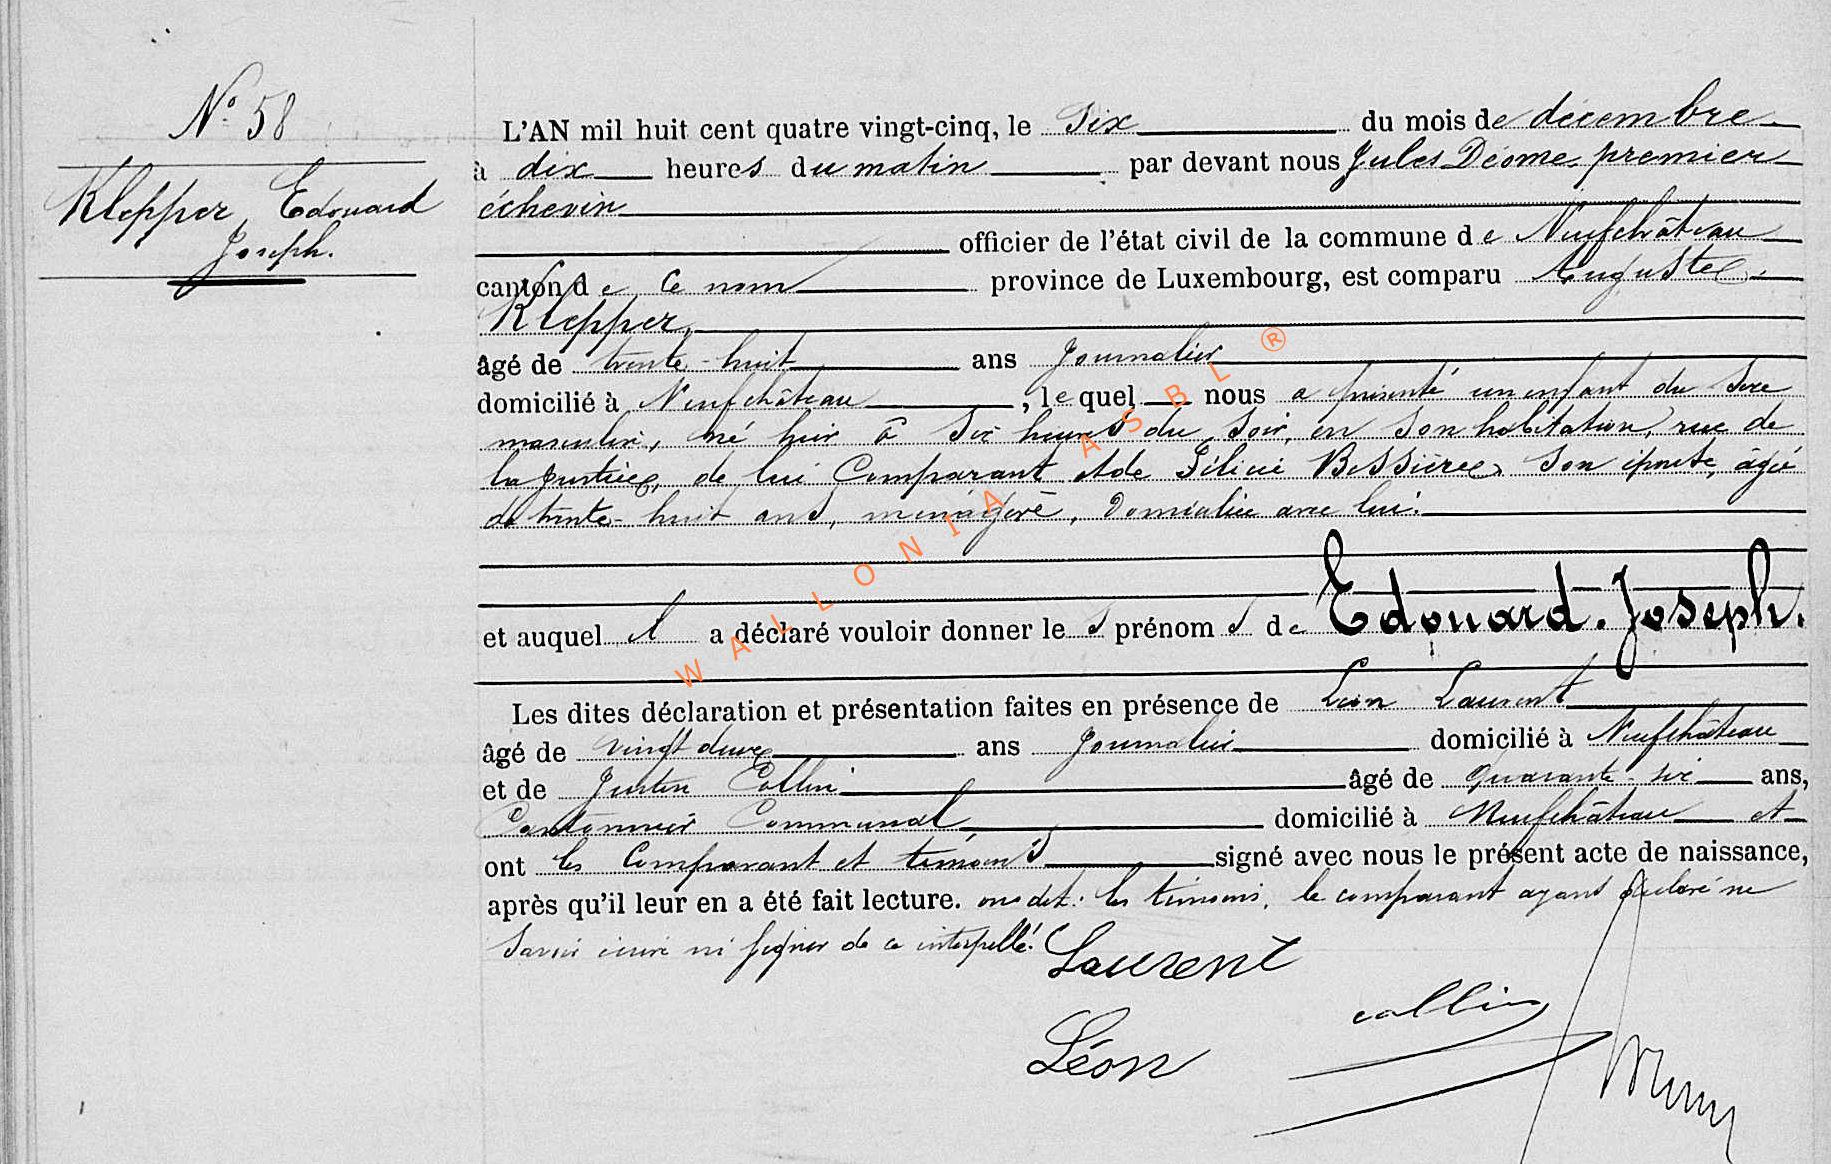 N° 58
Klepper, Edouard
Joseph.
L'AN mil huit cent quatre vingt-cinq, le Dix du mois de décembre
à dix heures du matin par devant nous Jules Déome, premier
échevin
officier de l'état civil de la commune de Neufchâteau
canton de Ce nom province de Luxembourg, est comparu Auguste
Klepper,
âgé de trente-huit ans Journalier
domicilié à Neufchâteau, lequel nous a présenté un enfant du Sexe
masculin, né hier à Six heures du Soir, en Son habitation, rue de
la Justice, de lui Comparant et de Félicie Bessière, Son épouse, âgée
de trente-huit ans, ménagère, Domiciliée avec lui.
et auquel il a déclaré vouloir donner les prénoms de Edouard. Joseph.
Les dites déclaration et présentation faites en présence de Léon Laurent
âgé de vingt deux ans Journalier domicilié à Neufchâteau
et de Justin Collin âgé de Quarante-six ans,
Cantonnier Communal domicilié à Neufchâteau et
ont les Comparant et témoins signé avec nous le présent acte de naissance,
après qu'il leur en a été fait lecture. les témoins, le comparant ayant déclaré ne
Savoir écrire ni Signer de ce interpellé.
Laurent
Léon
collin
WALLONIA ASBL ®